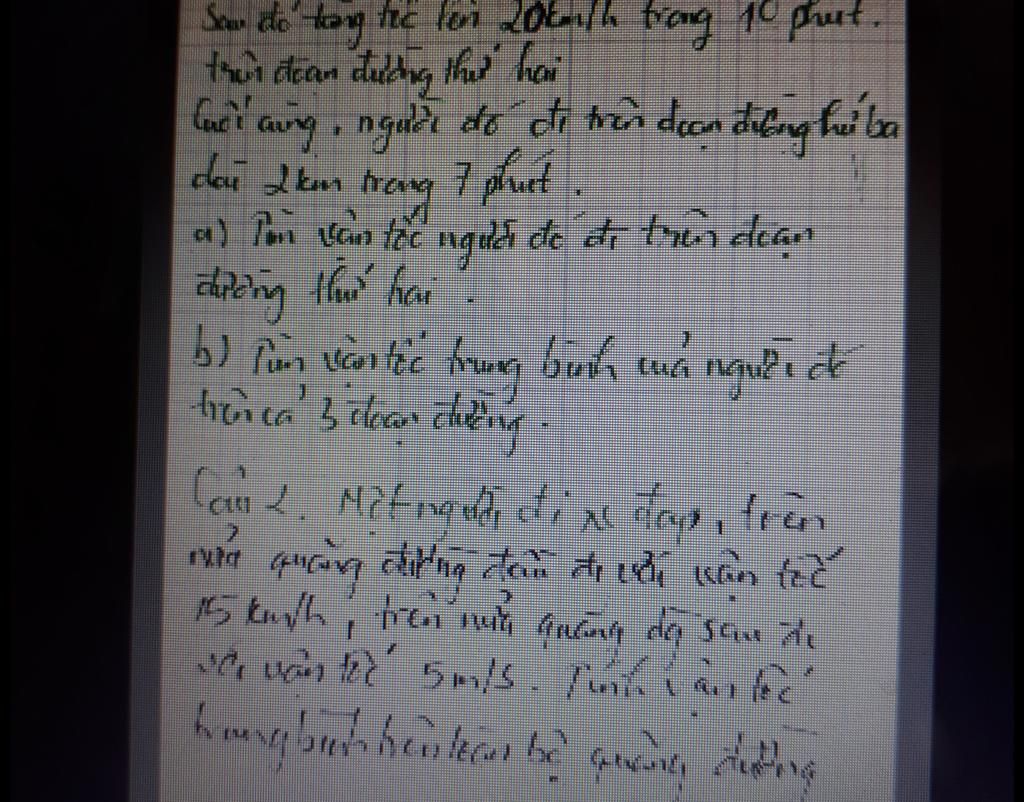 Sau đó tăng tốc lên 20km/h trong 10 phút.
trên đoạn đường thứ hai
Cuối cùng, người đó đi trên đoạn đường thứ ba
dài 2km trong 7 phút.
a) Tìm vận tốc người đó đi trên đoạn
đường thứ hai.
b) Tìm vận tốc trung bình của người đó
trên cả 3 đoạn đường.
Câu 2. Một người đi xe đạp, trên
nửa quãng đường đầu đi với vận tốc
15 km/h, trên nửa quãng đg sau đi
với vận tốc 5m/s. Tính vận tốc
trung bình trên toàn bộ quãng đường